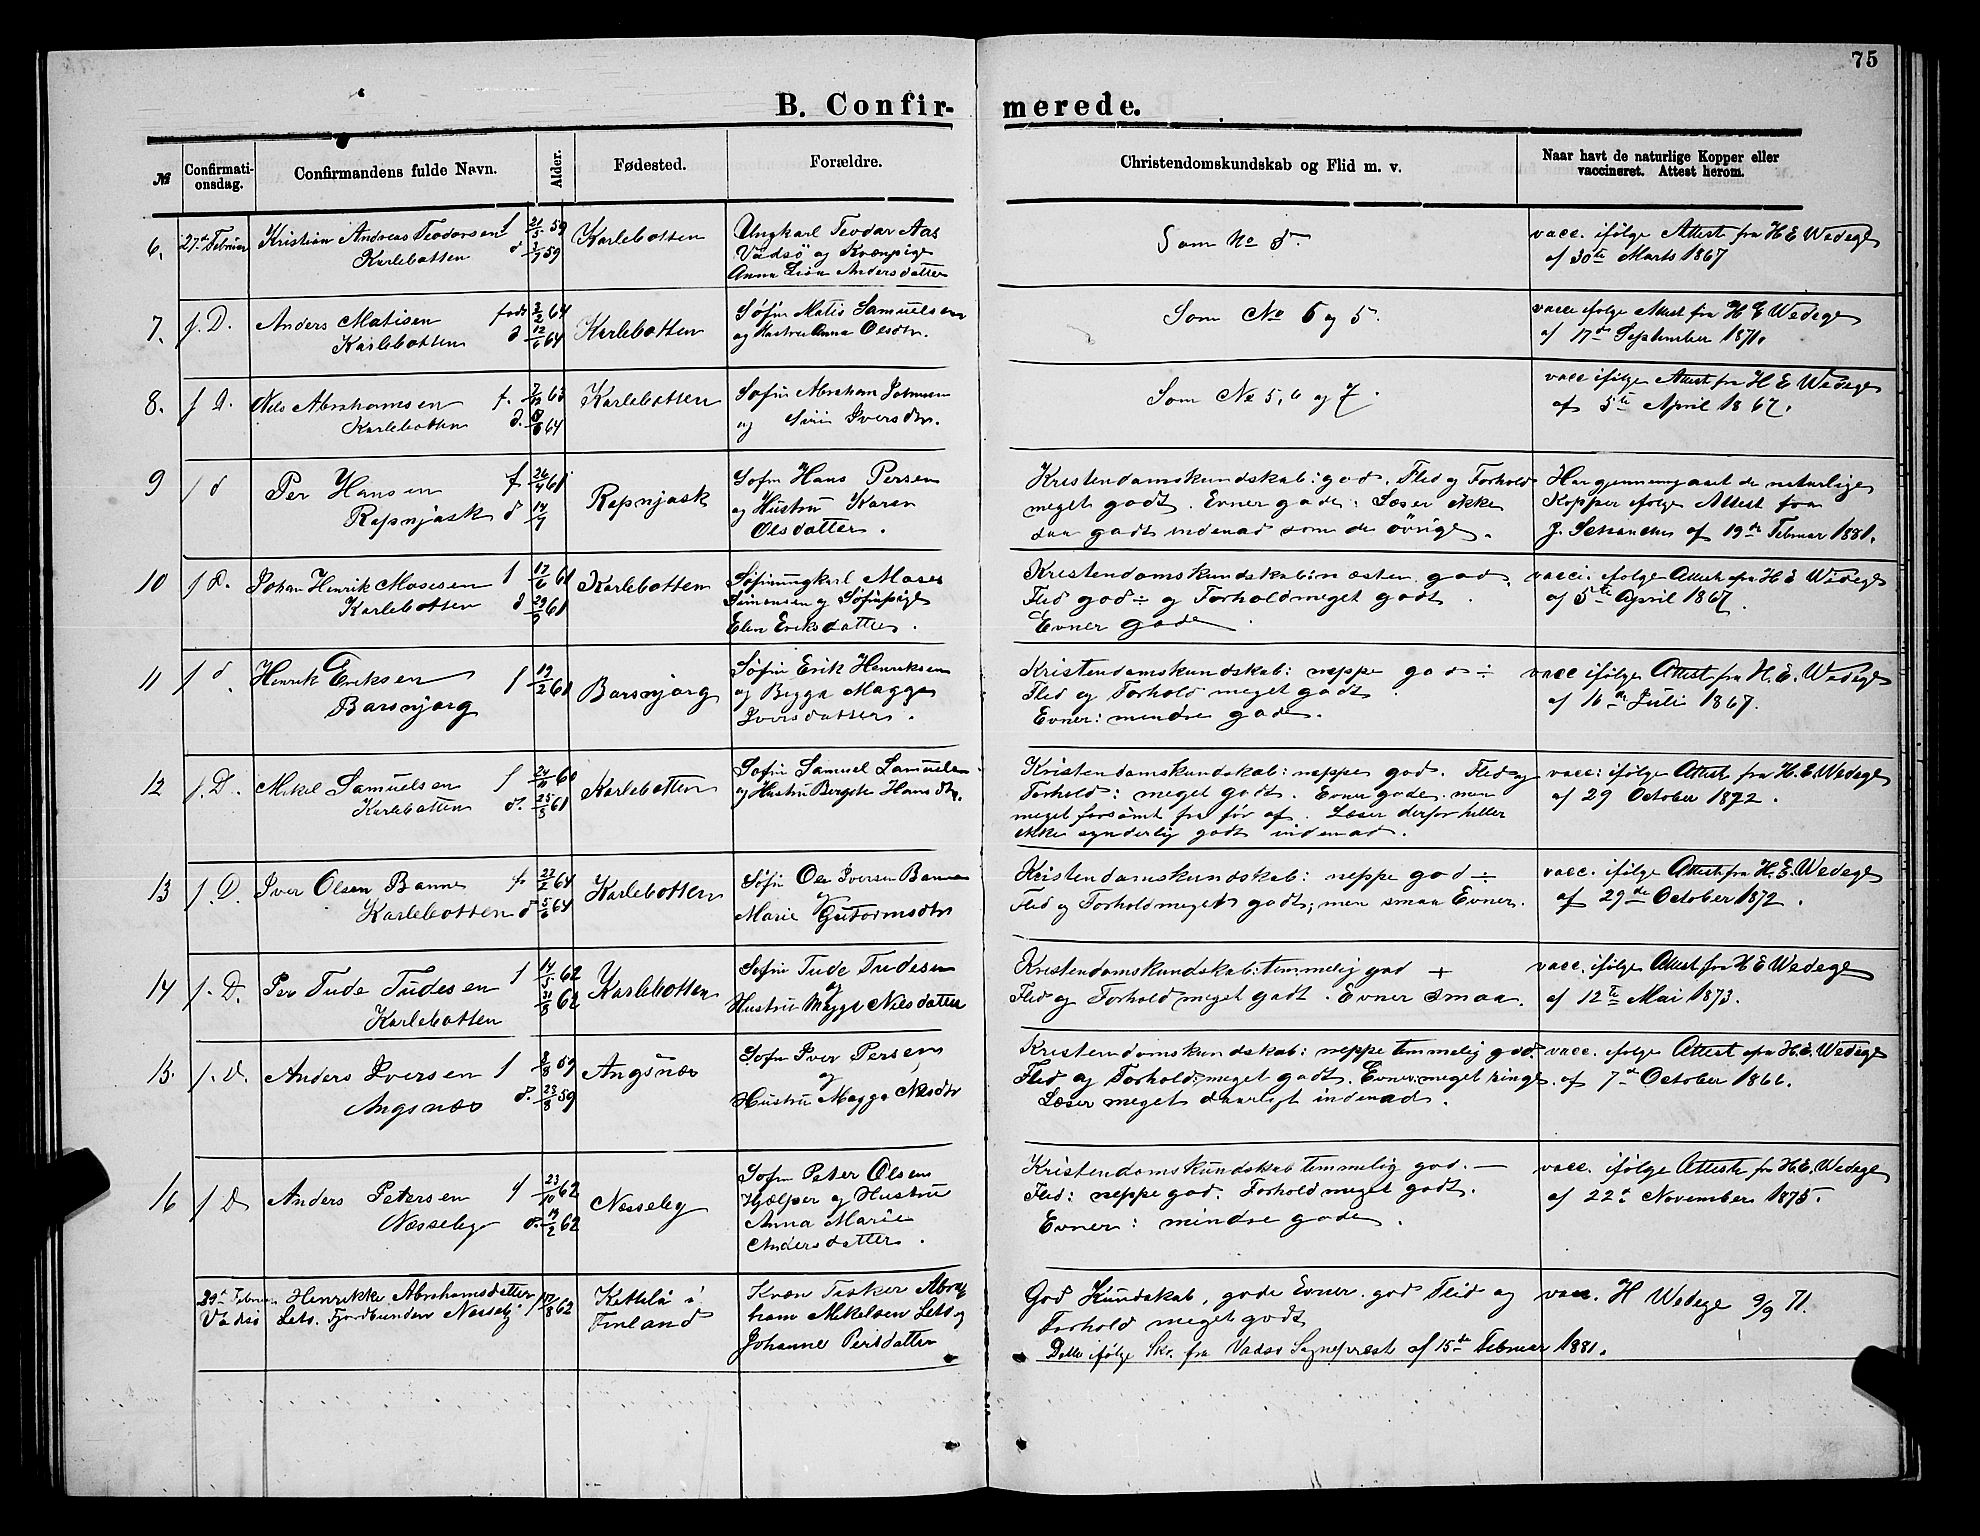 75
B. Confirmerede.
№ Confirmationsdag. Confirmandens fulde Navn. Alder. Fødested. Forældre. Christendomskundskab og Flid m. v. Naar havt de naturlige Kopper eller vaccineret. Attest herom.
6. 27de Februar Kristian Andreas Teodorsen f 59 Karlebotten Ungkarl Teodor Aas Som No 5. vacc. ifølge Attest fra H E Wedege
Karlebotten d 59 Vadsø og Kvænpige af 30te Marts 1867
Anna Lisa Andersdatter
7. f. D. Anders Matisen født 3/2 64 Karlebotten Søfin Matis Samuelsen Som No 6 og 5. vacc ifølge Attest fra H E Wedege
Karlebotten d 12/6 64 og Hustru Anna Olsdtr. af 17de September 1871.
8. f D. Nils Abrahamsen f. 63 Karlebotten Søfin Abraham Johnsen Som No 5, 6 og 7. vacc ifølge Attest fra H E Wedege
Karlebotten d. 64 og Siri Iversdtr. af 5te April 1867.
9 f d Per Hansen f 61 Repnjask Søfin Hans Persen Kristendomskundskab: god. Flid og Forhold Har gjennemgaaet de naturlige
Repnjask d og Hustru Karen meget godt. Evner gode: Læser ikke Kopper ifølge Attest fra
Olsdatter. saa godt indenad som de övrige. J. Schanche af 19de Februar 1881.
10 f D. Johan Henrik Mosesen f 17/6 61 Karlebotten Søfinungkarl Moses Kristendomskundskab: næsten god. vacci. ifølge Attest fra H E Wedege
Karlebotten d 61 Simonsen og Søfinpige Flid god ÷ og Forhold meget godt. af 5te April 1867.
Elen Eriksdatter. Evner gode
11 f d. Henrik Eriksen f 19/2 61 Barsnjarg Søfin Erik Henriksen Kristendomskundskab: neppe god ÷ vacc ifølge Attest fra H. E. Wedege
Barsnjarg og Bigga Magga Flid og Forhold meget godt. af 16de Juli 1867.
Iversdatter. Evner: mindre gode.
12 f. D. Mikel Samuelsen f 60 Karlebotten Søfin Samuel Samuelsen Kristendomskundskab: neppe god. Flid og vacc: ifølge Attest fra H. E. Wedege
Karlebotten d. 61 og Hustru Hansdtr. Forhold: meget godt. Evner gode. men af 29 October 1872.
meget forsömt fra før af. Læser derfor heller
ikke synderlig godt indenad.
13 f. D. Iver Olsen Banne f. 22/2 64 Karlebotten Søfin Ole Iversen Banne Kristendomskundskab: neppe god ÷ vacc. ifölge Attest fra H. E. Wedege
Karlebotten d 5/6 64 og Flid og Forhold meget godt; men smaa Evner. af 29de October 1872.
Marie Gutormsdtr
14 f. D. Per Tude Tudesen f 14/5 62 Karlebotten Søfin Tude Tudesen Kristendomskundskab: temmelig god + vacc. ifölge Attest fra H E Wedege
Karlebotten 31/8 62 og Flid og Forhold meget godt. Evner smaa. af 12te Mai 1873.
Hustru Magga Nilsdatter
15. f. D. Anders Iversen f 59 Angsnæs Søfin Iver Persen Kristendomskundskab: neppe temmelig god. vacc. ifølge Attest fra H. E. Wedege
Angsnæs d. 23/8 59 og Flid og Forhold: meget godt. Evner: meget ringe. af 7de October 1866.
Hustru Magga Nilsdtr Læser meget daarligt indenad.
16 f D Anders Petersen f 23/10 62 Næsseby Søfin Peter Olsen Kristendomskundskab temmelig god. — vacc. ifølge Attest fra H. E. Wedege
Næsseby d. 62 Hjælper og Hustru Flid: neppe god. Forhold meget godt. af 22de November 1875.
Anna Marie Evner: mindre gode.
Andersdatter.
Februar Henrikke Abrahamsdatter 62 Kittilä i Kvæn Fisker Abraham God Kundskab, gode Evner. god Flid og vacc. H Wedege 9/9 71.
Vadsø Fjordbunden Næsseby Finland Mikelsen og Forhold meget godt
Johanne Persdatter Dette ifölge Skr. fra Vadsø Sognepræst af 15de Februar 1881.